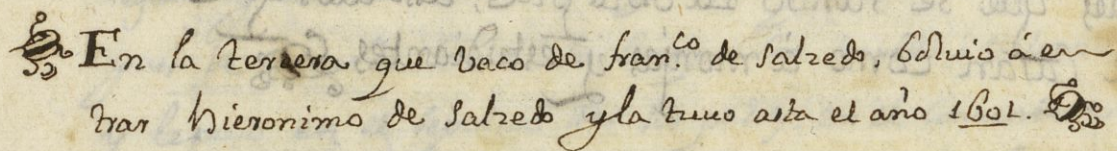 En la tercera que vaco de fran.co de salzedo, boluio á en
trar hieronimo de salzedo y la tuuo asta el año 1601.